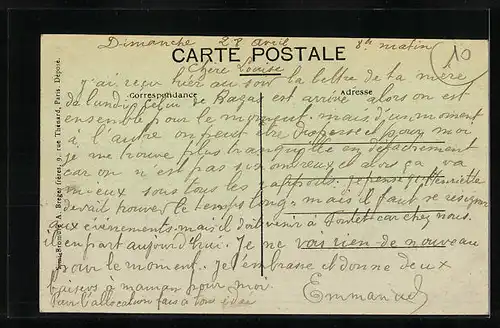 Dimanche 28 avril 8h matin
10
CARTE POSTALE
Chère Louise
j'ai reçu hier au soir la lettre de ta mère
Correspondance
Adresse
de lundi celui de Bazas est arrivé alors on est
ensemble pour le moment mais d'un moment
à l'autre on peut être dispersé et pour moi
je me trouve plus tranquille en détachement
car on n'est pas si nombreux et alors ça va
mieux sous tous les rapports. je pense que Henriette
devait trouver le temps long, mais il faut se résigner
aux évènements mais il doit venir à car chez nous
il en part aujourd'hui. Je ne vois rien de nouveau
pour le moment. Je t'embrasse et donne deux
baisers à maman pour moi.
Pour l'allocation fais à ton idée
Emmanuel
A. Breger frères, 9, rue Thénard, Paris. Déposé.